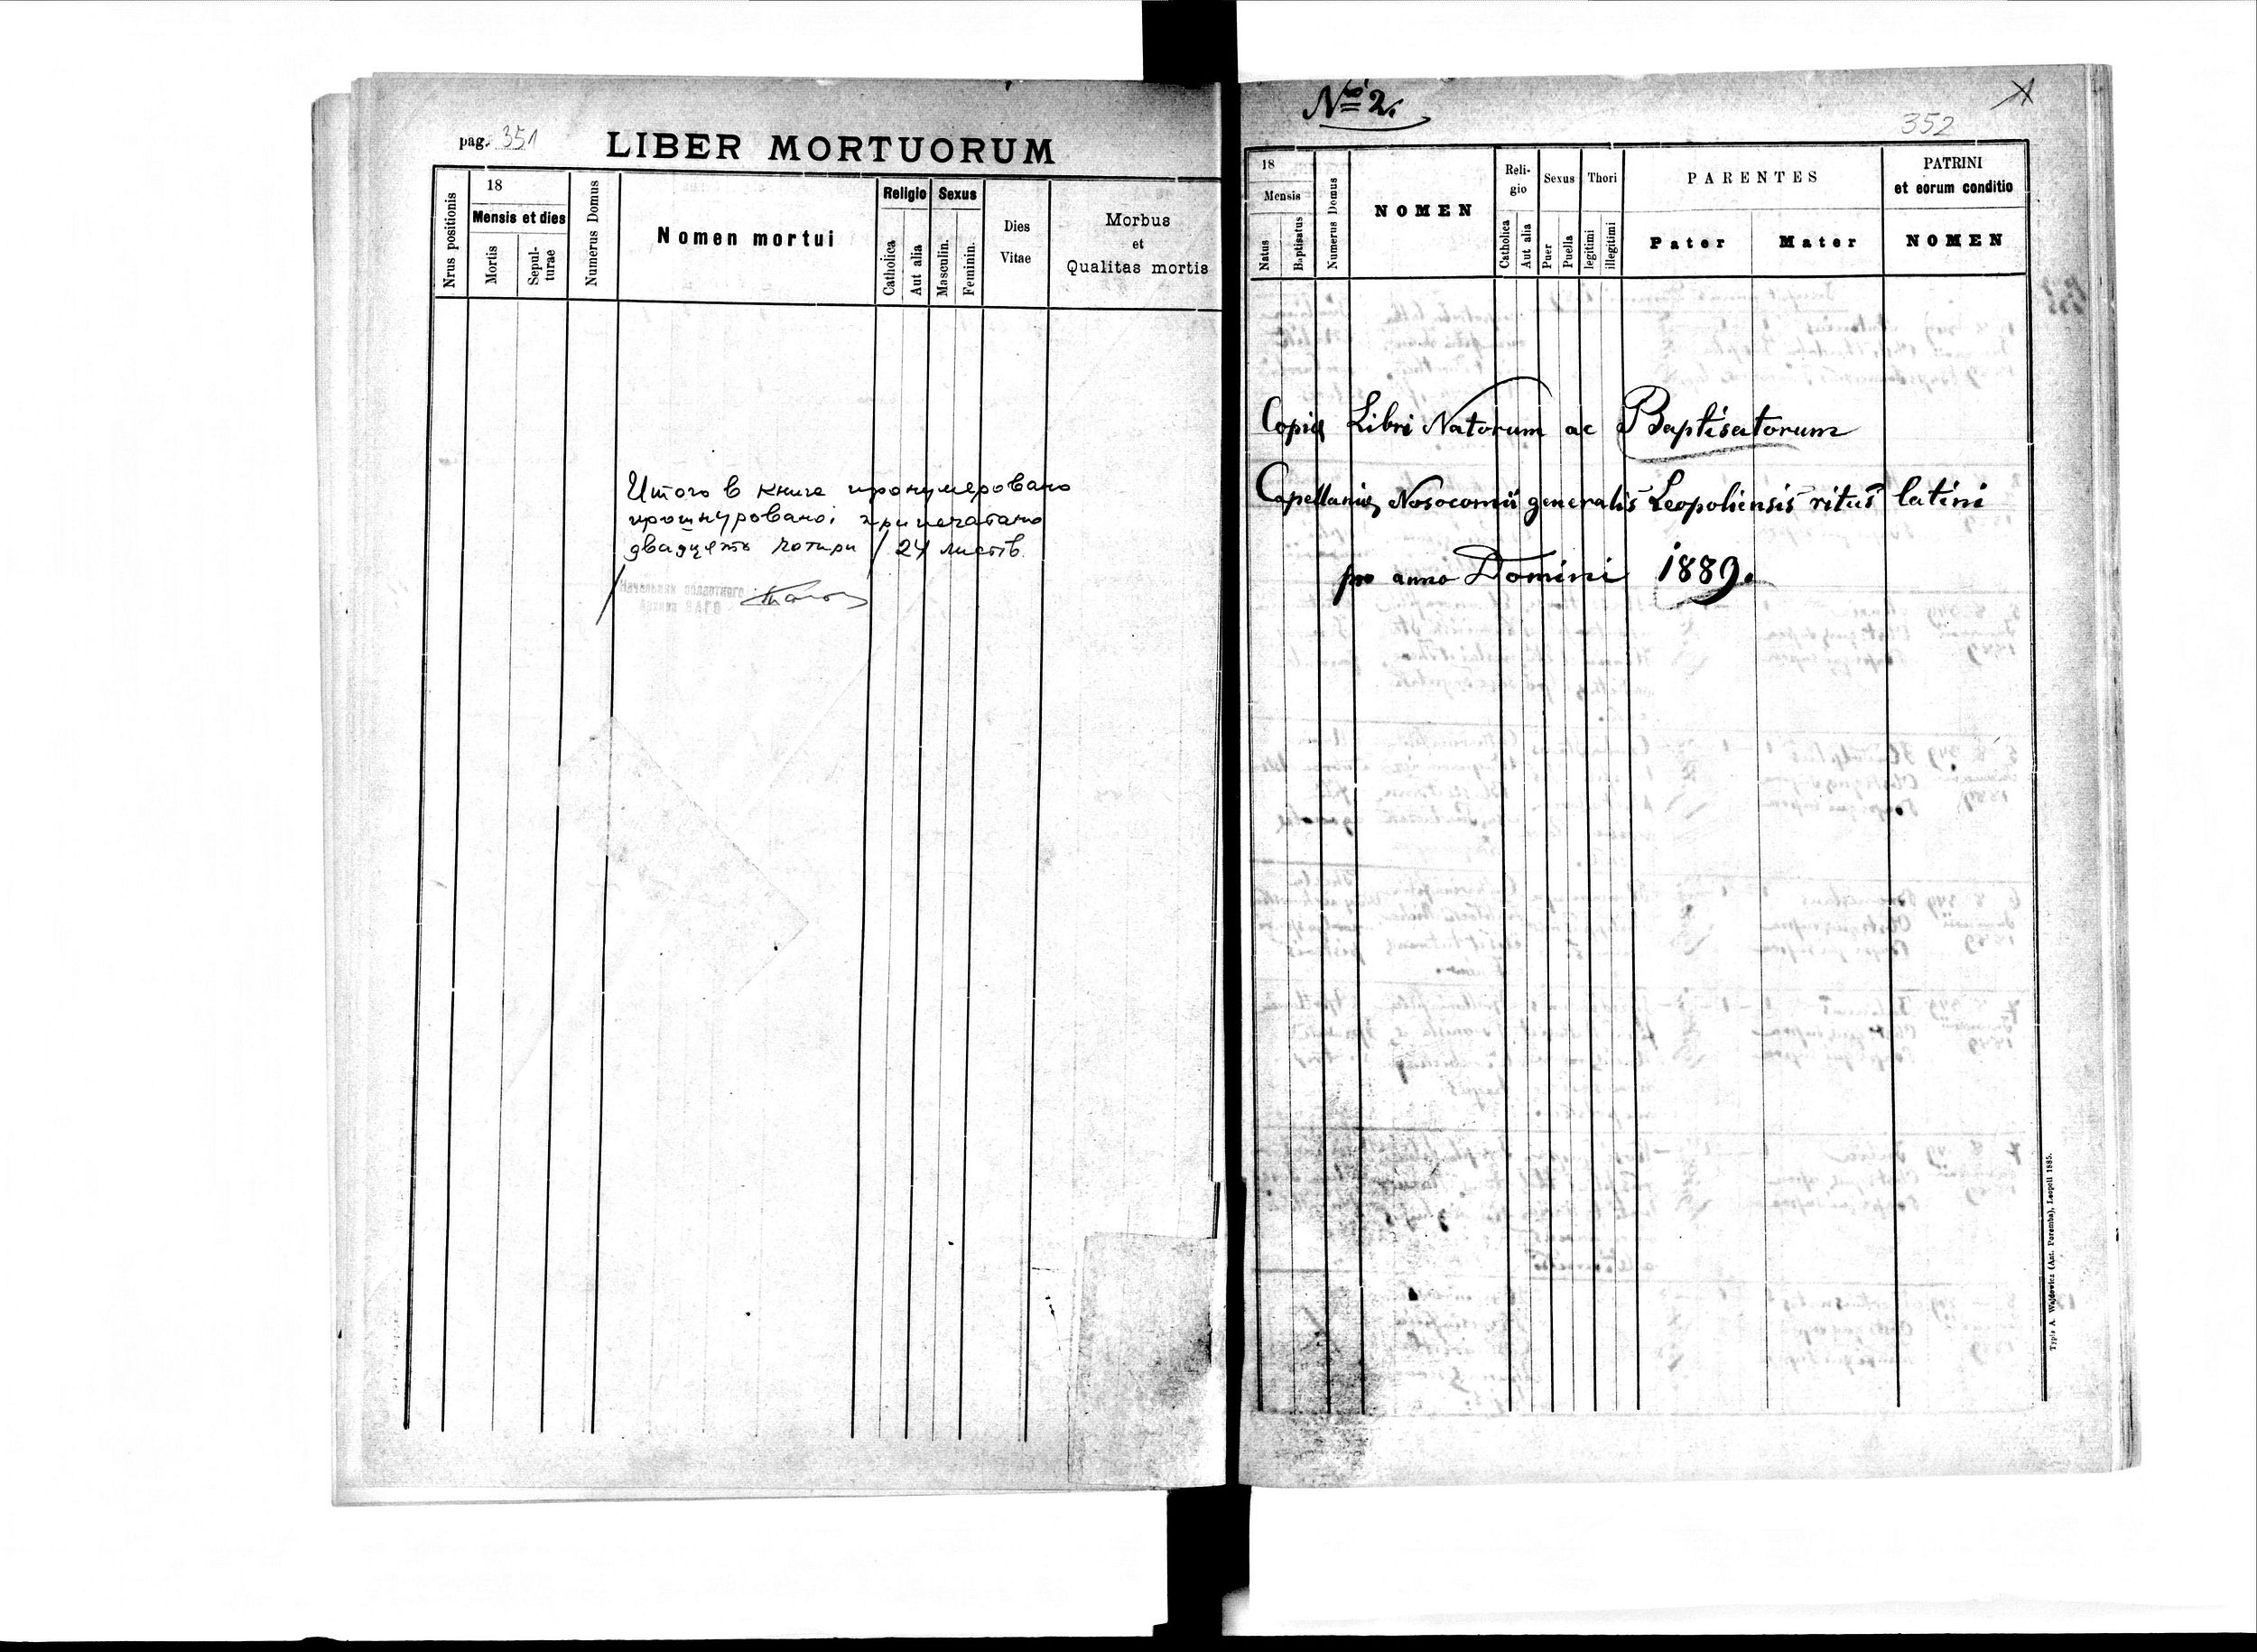 pag. 351
LIBER MORTUORUM
Nrus positionis
18
Mensis et dies
Mortis
Sepul-
turae
Numerus Domus
Nomen mortui
Religio
Catholica
Aut alia
Sexus
Masculin.
Feminin.
Dies
Vitae
Morbus
et
Qualitas mortis
Итого в книге пронумеровано
прошнуровано, припечатано
двадцять чотири / 24 листів
Начальник областного
Архива ЗАГС
№ 2.
352
18
Mensis
Natus
Baptisatus
Numerus Domus
NOMEN
Reli-
gio
Catholica
Aut alia
Sexus
Puer
Puella
Thori
legitimi
illegitimi
PARENTES
Pater
Mater
PATRINI
et eorum conditio
NOMEN
Copia Libri Natorum ac Baptisatorum
Capellaniæ Nosocomii generalis Leopoliensis ritus latini
pro anno Domini 1889.
Typis A. Wajdowicz (Ant. Poremba), Leopoli 1885.